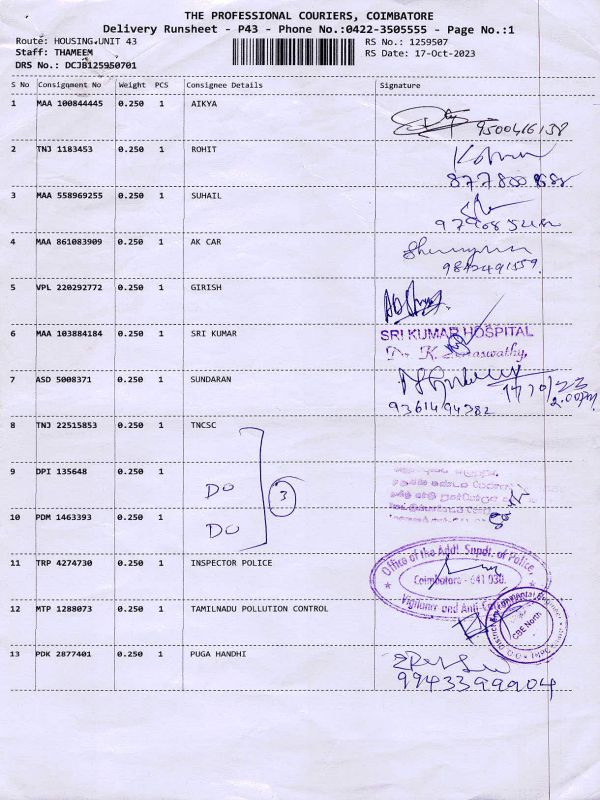 THE PROFESSIONAL COURIERS, COIMBATORE
Delivery Runsheet - P43 - Phone No.:0422-3505555 - Page No.:1
Route: HOUSING UNIT 43
RS No.: 1259507
Staff: THAMEEM
RS Date: 17-Oct-2023
DRS No.: DCJB125950701
S No Consignment No Weight PCS Consignee Details Signature
1 MAA 100844445 0.250 1 AIKYA
9500416138
2 TNJ 1183453 0.250 1 ROHIT
3 MAA 558969255 0.250 1 SUHAIL
4 MAA 861083909 0.250 1 AK CAR
9842491559.
5 VPL 220292772 0.250 1 GIRISH
6 MAA 103884184 0.250 1 SRI KUMAR SRI KUMAR HOSPITAL
Dr. K.
7 ASD 5008371 0.250 1 SUNDARAN
17/10/23
9361494382 2.00pm
8 TNJ 22515853 0.250 1 TNCSC
9 DPI 135648 0.250 1
DO 3
10 PDM 1463393 0.250 1
DO
11 TRP 4274730 0.250 1 INSPECTOR POLICE
Office of the Addl. Supdt. of Police,
Coimbatore - 641 030.
Vigilance and Anti-
12 MTP 1288073 0.250 1 TAMILNADU POLLUTION CONTROL
CBE North
13 PDK 2877401 0.250 1 PUGA HANDHI
9943399904